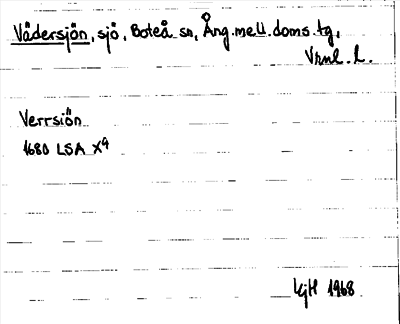 Vädersjön, sjö, Boteå sn, Ång. mell. doms. tg,
Vrnl. L.
Verrsiön
1680 LSA X9
KjH 1968